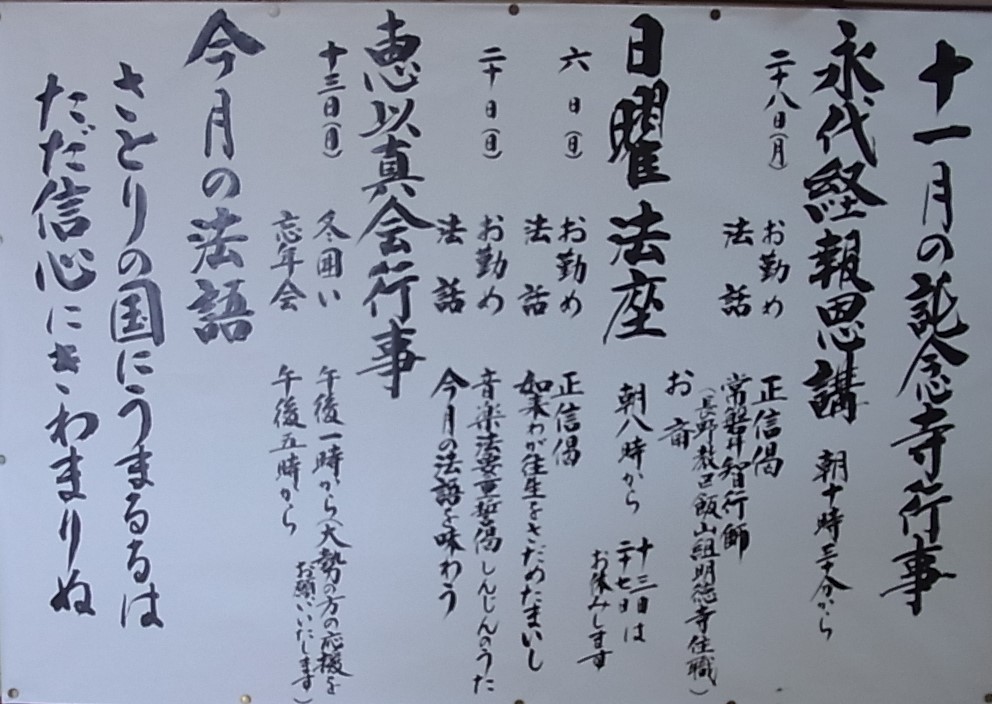 十一月の託念寺行事
永代経報恩講 朝十時三十分から
二十八日(月) お勤め 正信偈
法話 常磐井智行師
(長野教区飯山組明徳寺住職)
お斎
日曜法座 朝八時から 十三日 二十七日は
お休みします
六日(日) お勤め 正信偈
法話 如来わが往生をさだめたまいし
二十日(日) お勤め 音楽法要重誓偈 しんじんのうた
法話 今月の法語を味わう
恵以真会行事
十三日(日) 冬囲い 午後一時から(大勢の方の応援を
お願いいたします)
忘年会 午後五時から
今月の法語
さとりの国にうまるるは
ただ信心にきわまりぬ